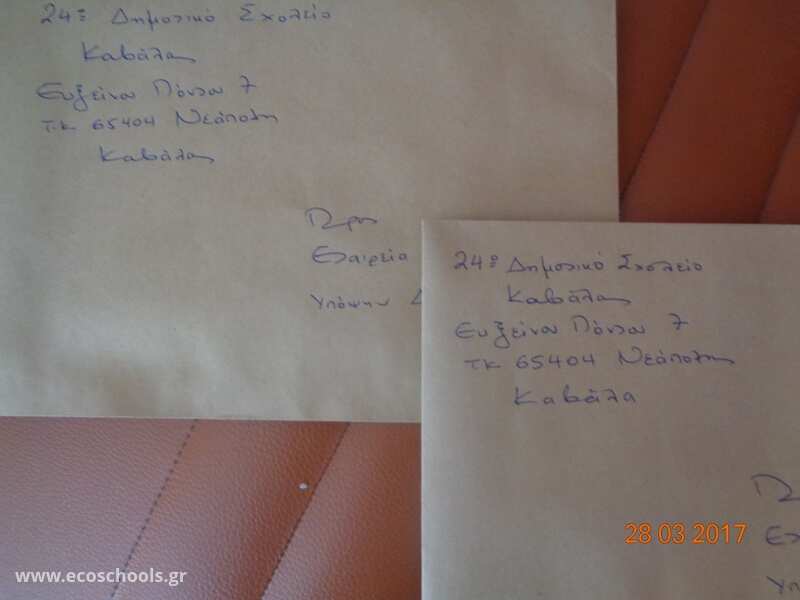 24ο Δημοτικό Σχολείο
Καβάλας
Ευξείνου Πόντου 7
Τ.Κ 65404 Νεάπολη
Καβάλας
Προς
Εταιρεία
Υπόψην Δ
24ο Δημοτικό Σχολείο
Καβάλας
Ευξείνου Πόντου 7
ΤΚ 65404 Νεάπολης
Καβάλα
28 03 2017
www.ecoschools.gr